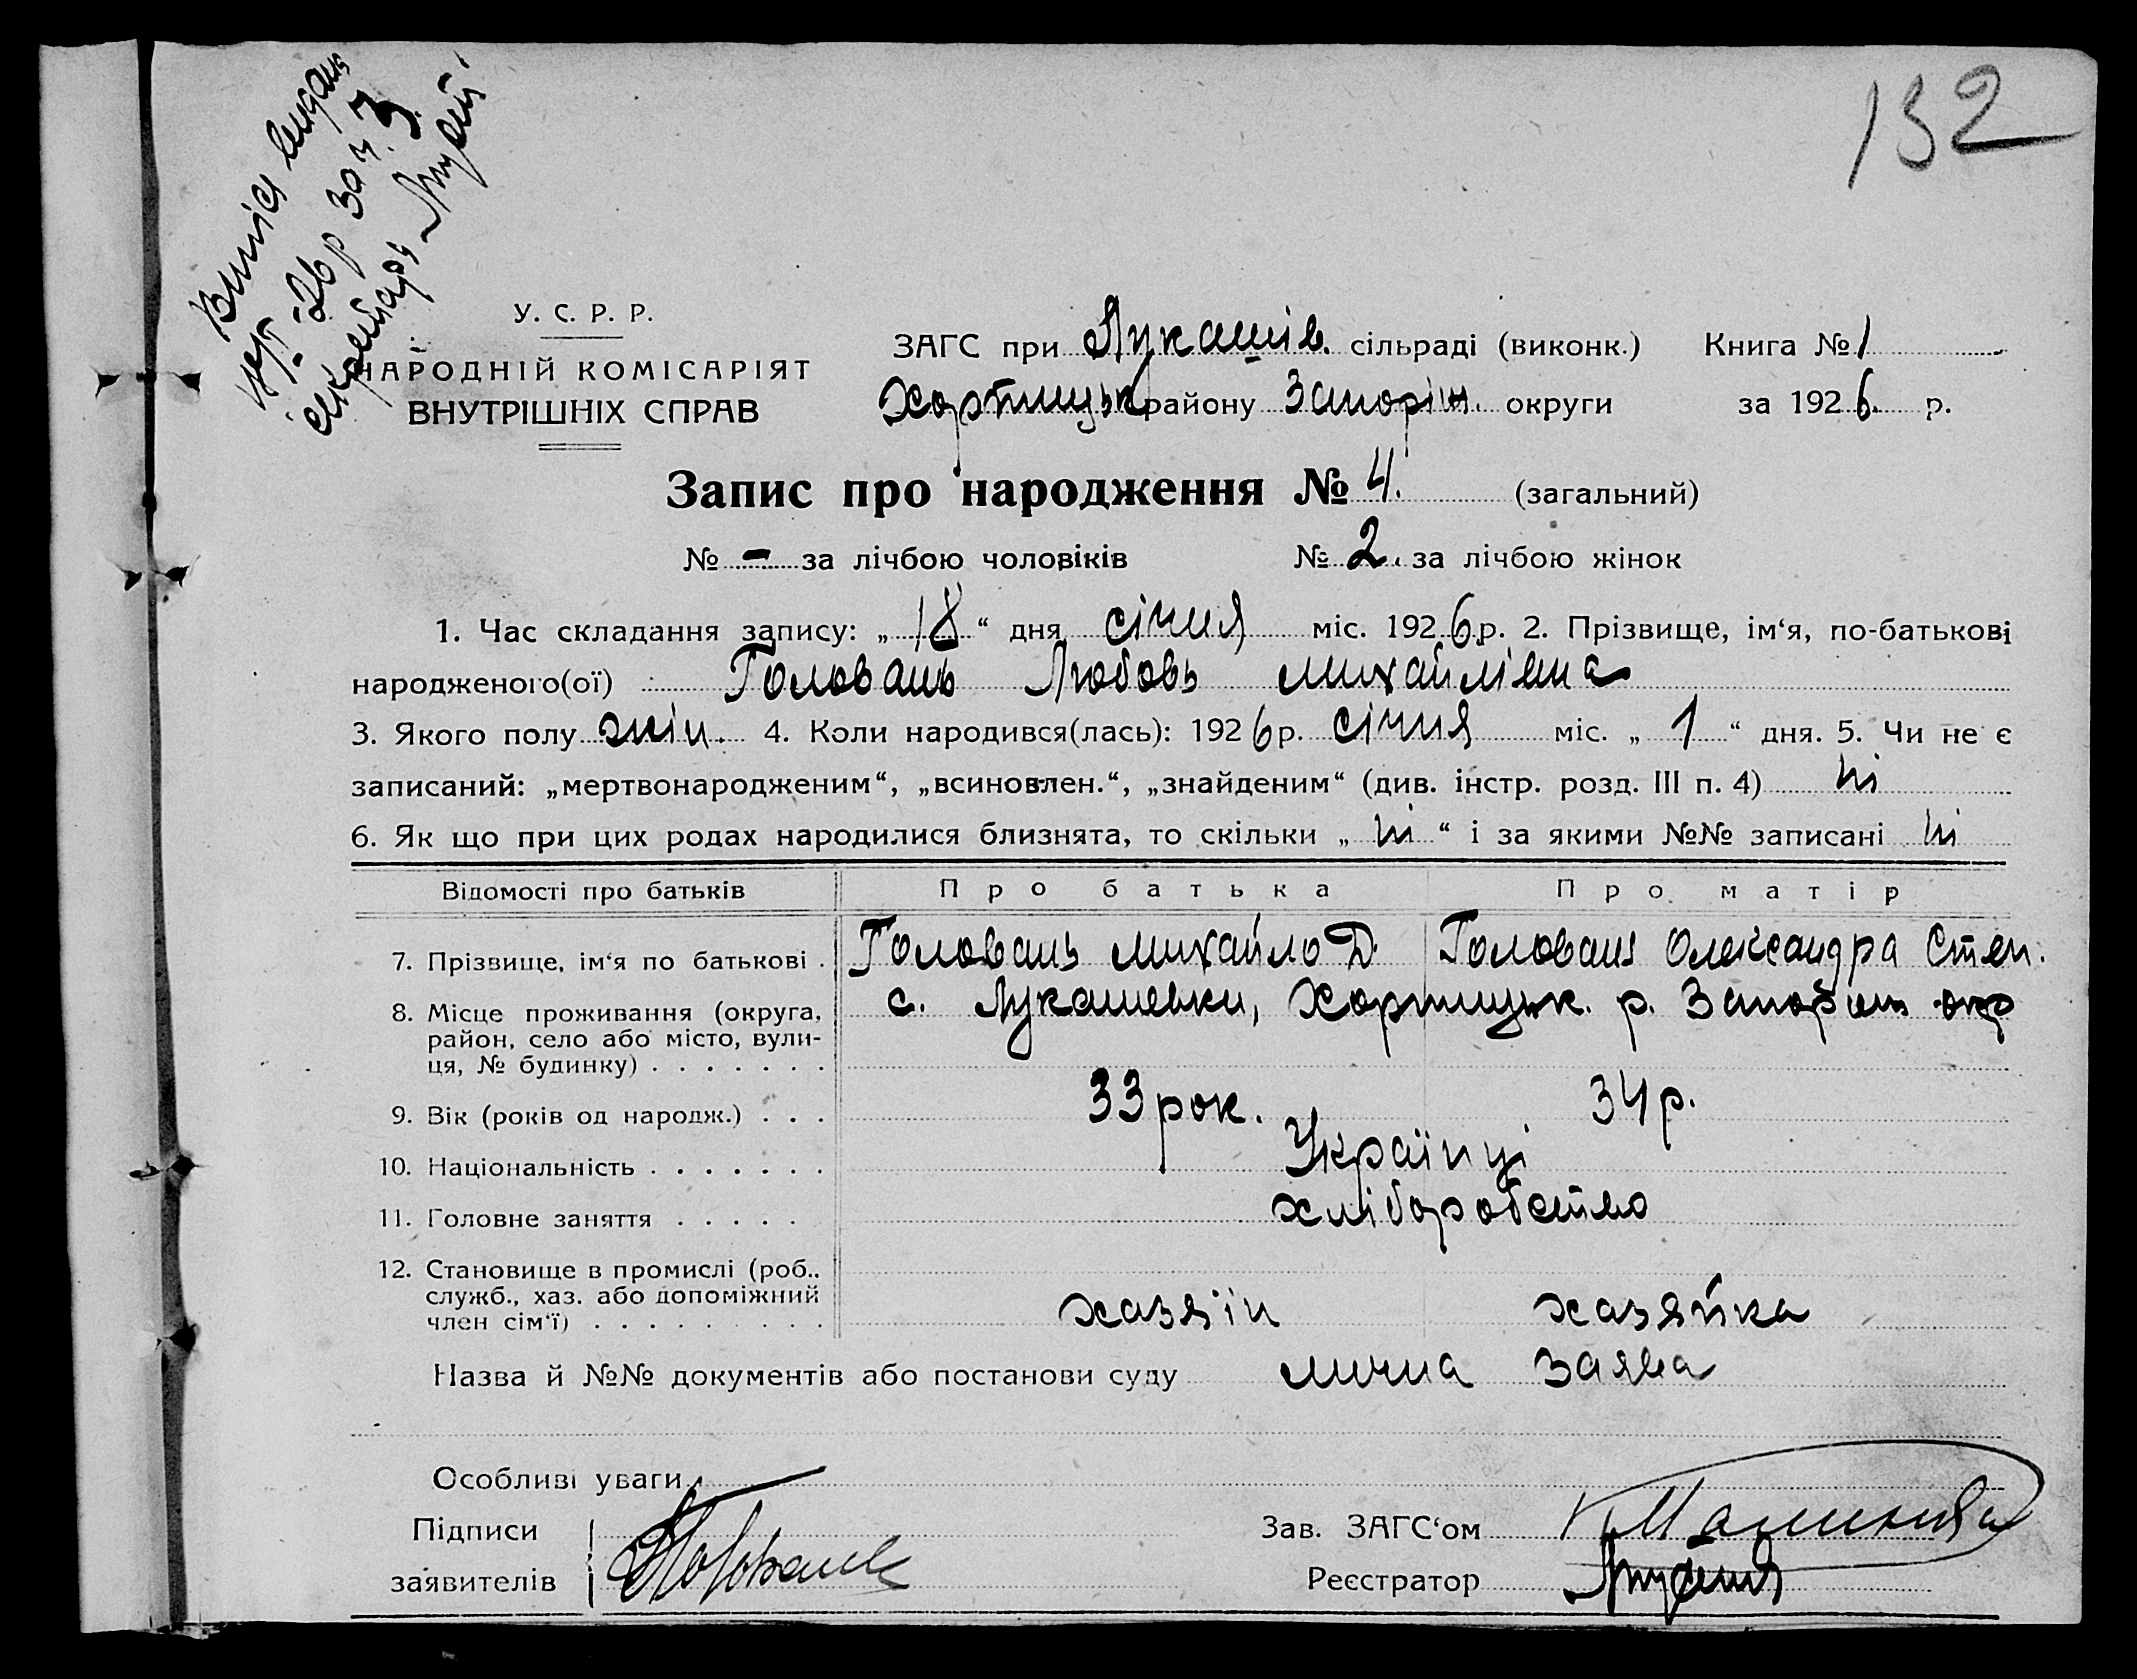 132
Випис видан
26 р за ч. 3
секретарь
У. С. Р. Р.
НАРОДНІЙ КОМІСАРІЯТ
ВНУТРІШНІХ СПРАВ
ЗАГС при Лукашів. сільраді (виконк.) Книга № 1
Хортицьк району Запоріж. округи за 1926. р.
Запис про народження № 4. (загальний)
№ - за лічбою чоловіків № 2. за лічбою жінок
1. Час складання запису: „ 18 “ дня січня міс. 1926 р. 2. Прізвище, ім‘я, по-батькові
народженого(ої) Головань Любовь Михайлівна
3. Якого полу жін. 4. Коли народився(лась): 1926 р. січня міс. „ 1 “ дня. 5. Чи не є
записаний: „мертвонародженим“, „всиновлен.“, „знайденим“ (див. інстр. розд. III п. 4) ні
6. Як що при цих родах народилися близнята, то скільки „ ні “ і за якими №№ записані ні
Відомості про батьків Про батька Про матір
7. Прізвище, ім‘я по батькові . Головань Михайло Д. Головань Олександра Степ.
8. Місце проживання (округа, с. Лукашевки, Хортицьк. р. Запоріж окр
район, село або місто, вули-
ця, № будинку) . . . . . . .
9. Вік (років од народж.) . . . 33 рок. 34 р.
10. Національність . . . . . . . Українці
11. Головне заняття . . . . . хліборобство
12. Становище в промислі (роб.,
служб., хаз. або допоміжний
член сім‘ї) . . . . . . . . . хазяїн хазяйка
Назва й №№ документів або постанови суду лична заява
Особливі уваги
Підписи
заявителів Головань
Зав. ЗАГС‘ом
Реєстратор